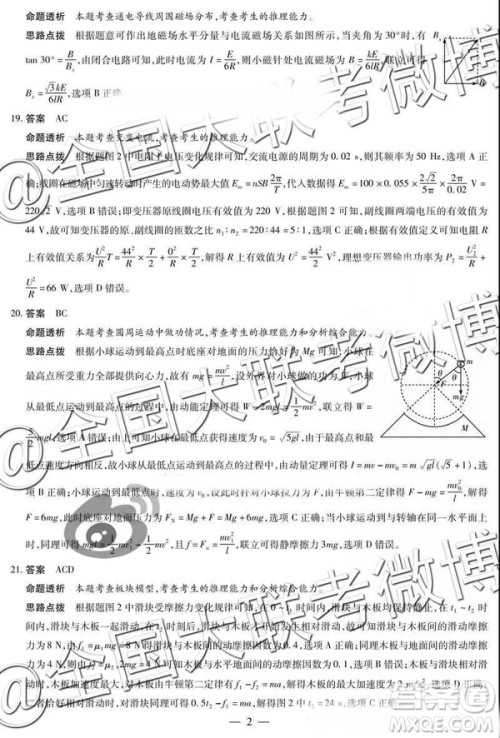 命题透析 本题考查通电导线周围磁场分布,考查考生的推理能力。
思路点拨 根据题意可作出地磁场水平分量与电流磁场关系如图所示,当夹角为30°时,有
tan 30° = B/Bx,由闭合电路可知,此时电流为 I = E/6R,则小磁针处电流磁场为
Bx = √3kE/6lR,选项 B 正确
19. 答案 AC
命题透析 本题考查交变电流,考查考生的推理能力。
思路点拨 根据图2中电阻 电压变化规律可知,交流电源的周期为0.02 s,则其频率为50 Hz,选项 A 正
确;线圈在磁场中匀速转动时产生的电动势最大值 Em = nSB 2π/T,代入数据有 Em = 100 × 0.055 × 2√2/5π × 2π/0.02 V =
220√2 V,选项 B 错误;即变压器原线圈电压有效值为220 V,根据题图2可知,副线圈两端电压的有效值为
44 V,故可知变压器的原、副线圈的匝数之比 n1:n2 = 220:44 = 5:1,选项 C 正确;根据有效值定义可知电阻 R
上有效值关系为 U²/R T = 44²/R × T/2 + 0²/R × T/2,解得 R 上有效值为 U = 22√2 V,理想变压器输出功率为 P2 = U2²/R +
U²/R = 66 W,选项 D 错误。
20. 答案 BC
命题透析 本题考查圆周运动中做功情况,考查考生的推理能力和分析综合能力。
思路点拨 根据小球运动到最高点时底座对地面的压力恰好为 Mg 可知,小球在
最高点所受重力全部提供向心力,故有 mg = mv²/l,设外界对小球做的功为 W,小球
从最低点运动到最高点的过程中,由动能定理可得 W − 2mgl = 1/2 mv²,联立得 W =
5/2 mgl,选项 A 错误;由上可知小球在最低点获得速度为 v0 = √5gl;由于最高点和最
低点速度方向相反,故小球从最低点运动到最高点的过程中,由动量定理可得 I = mv − mv0 = m√gl(√5 + 1),选
项 B 正确;小球运动到最低点时,速度为 v0,设此时杆对小球拉力为 F,由牛顿第二定律得 F − mg = mv0²/l,解得
F = 6mg,此时底座对地面压力为 FN = Mg + F = Mg + 6mg,选项 C 正确;当小球运动到与转轴在同一水平面上
时,同理可得 mgl = 1/2 mv0² − 1/2 mv²,且 f = Fn = mv²/l,联立可得静摩擦力为3mg,选项 D 错误。
21. 答案 ACD
命题透析 本题考查板块模型,考查考生的推理能力和分析综合能力。
思路点拨 根据图2中滑块受摩擦力变化规律可知,在 0 ~ t1 时间内,滑块与木板均保持静止,在 t1 ~ t2 时间
内,滑块与木板一起滑动,在 t2 时刻后,滑块与木板间发生相对滑动,
力为8 N,由 f = μ1mg = 8 N 可知,滑块与木板间的动摩擦因数为0.4,选项 A 正确;
力为4 N,则由 f2 = μ2·2mg = 4 N 可知木板与水平地面间的动摩擦因数为0.1,选项 B 错误;木板与滑块相对滑
动时,对木板由牛顿第二定律有 f1 − f2 = ma,解得木板的最大加速度为2 m/s²,选项
二者恰好相对滑动时,对滑块同理可得 f1 = ma,解得图2中 t2 = 24 s,选项 D 正确。
— 2 —
@全国大联考微博
@全国大联考微博
@全国大联考微博